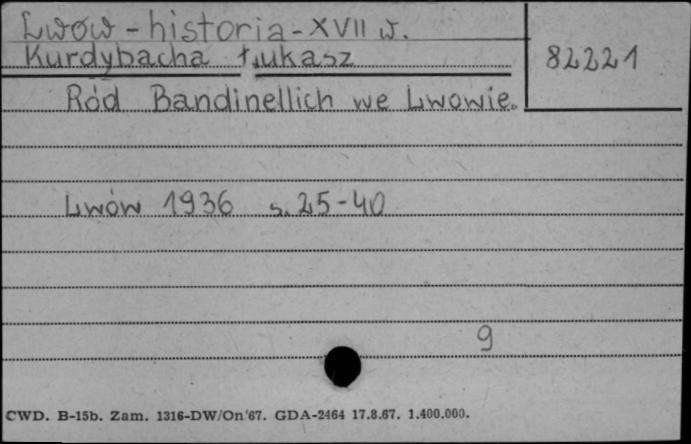 Lwów - historia - XVII w.
Kurdybacha Łukasz
82221
Ród Bandinellich we Lwowie.
Lwów 1936 s. 25-40
9
CWD. B-15b. Zam. 1316-DW/On'67. GDA-2464 17.8.67. 1.400.000.